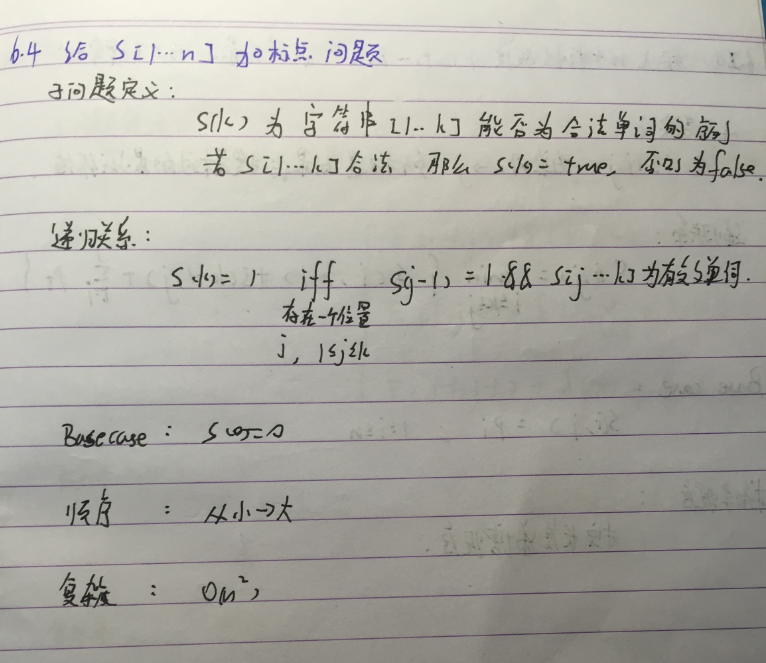 6.4 给 S[1...n] 加标点 问题
子问题定义：
S(k) 为 字符串 [1..k] 能否为合法单词的序列
若 S[1...k] 合法 那么 S(k) = true, 否则为false.
递归关系：
S(k) = 1 iff S(j-1) = 1 && S[j...k]为有效单词.
存在一个位置
j, 1≤j≤k
Base case : S(0)=
顺序 : 从小→大
复杂度 : O(n²)